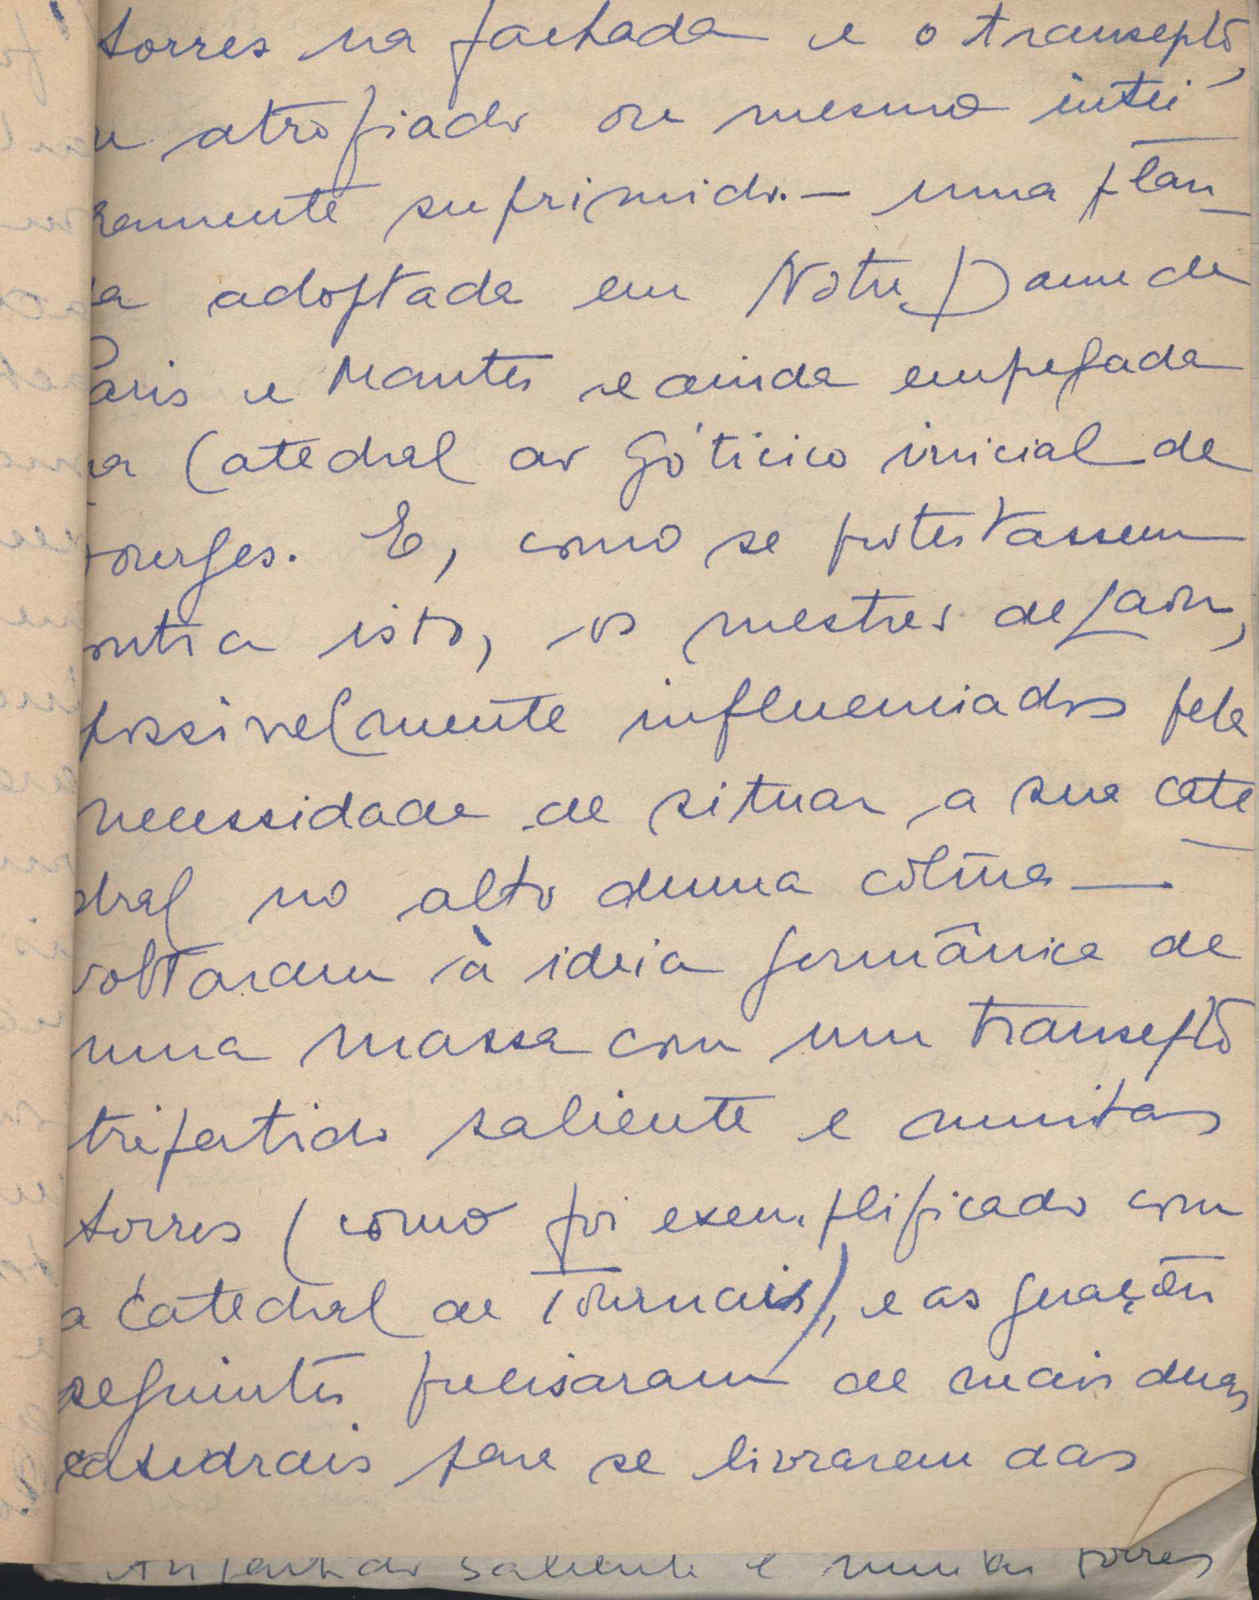 torres na fachada e o transepto,
ou atrofiado ou mesmo intei-
ramente suprimido. — uma plan-
ta adoptada em Notre Dame de
Paris e Mantes e ainda empregada
na Catedral ao Góticico inicial de
Bourges. E, como se protestassem
contra isto, os mestres de Laon,
possivelmente influenciados pela
necessidade de situar a sua cate-
dral no alto duma colina —
voltaram à ideia germânica de
uma massa com um transepto
tripartido saliente e muitas
torres (como foi exemplificado com
a Catedral de Tournais), e as gerações
seguintes precisaram de mais duas
catedrais para se livrarem das
tripartido saliente e muitas torres